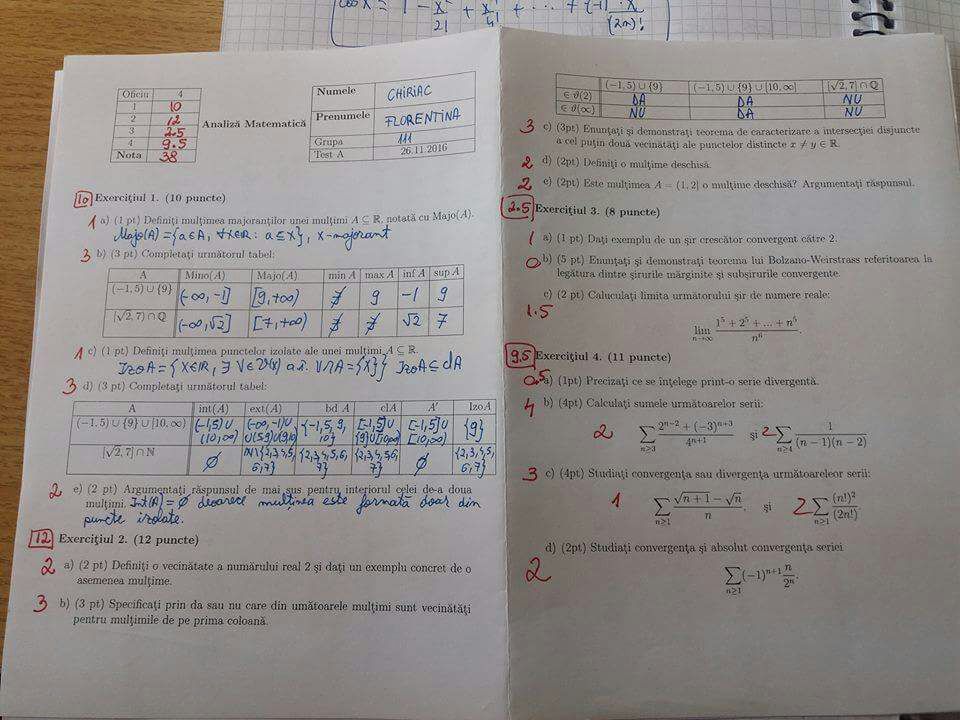 cos x = 1 - x²/2! + x⁴/4! + ... + (-1)ⁿ · x /(2n)!
Oficiu 4
1 10
2 12
3 2.5
4 9.5
Nota 38
Analiză Matematică
Numele CHIRIAC
Prenumele FLORENTINA
Grupa 111
Test A 26.11.2016
10 Exerciţiul 1. (10 puncte)
1 a) (1 pt) Definiţi mulţimea majoranţilor unei mulţimi A ⊆ ℝ, notată cu Majo(A).
Majo(A) = {a∈A, ∀x∈ℝ: a ≤ x}, x-majorant
3 b) (3 pt) Completaţi următorul tabel:
A Mino(A) Majo(A) min A max A inf A sup A
(−1, 5) ∪ {9} (-∞, -1] [9, +∞) ∄ 9 -1 9
[√2, 7) ∩ ℚ (-∞, √2] [7, +∞) ∄ ∄ √2 7
1 c) (1 pt) Definiţi mulţimea punctelor izolate ale unei mulţimi A ⊆ ℝ.
IzoA = {x∈ℝ, ∃ V∈ϑ(x) a.î. V∩A = {x}} IzoA ⊆ clA
3 d) (3 pt) Completaţi următorul tabel:
A int(A) ext(A) bd A clA A′ IzoA
(−1, 5) ∪ {9} ∪ [10, ∞) (-1,5) ∪ (10,∞) (-∞,-1) ∪ ∪(5,9) ∪ (9,10) {-1, 5, 9, 10} [-1,5] ∪ {9} ∪ [10,∞) [-1,5] ∪ [10,∞) {9}
[√2, 7] ∩ ℕ ∅ ℝ\{2,3,4,5, 6,7} {2,3,4,5,6, 7} {2,3,4,5,6, 7} ∅ {2,3,4,5, 6,7}
2 e) (2 pt) Argumentaţi răspunsul de mai sus pentru interiorul celei de-a doua
mulţimi. Int(A) = ∅ deoarece mulţimea este formată doar din
puncte izolate.
12 Exerciţiul 2. (12 puncte)
2 a) (2 pt) Definiţi o vecinătate a numărului real 2 şi daţi un exemplu concret de o
asemenea mulţime.
3 b) (3 pt) Specificaţi prin da sau nu care din umătoarele mulţimi sunt vecinătăţi
pentru mulţimile de pe prima coloană.
(−1, 5) ∪ {9} (−1, 5) ∪ {9} ∪ [10, ∞] [√2, 7] ∩ ℚ
∈ ϑ(2) DA DA NU
∈ ϑ(∞) NU DA NU
3 c) (3pt) Enunţaţi şi demonstraţi teorema de caracterizare a intersecţiei disjuncte
a cel puţin două vecinătăţi ale punctelor distincte x ≠ y ∈ ℝ.
2 d) (2pt) Definiţi o mulţime deschisă.
2 e) (2pt) Este mulţimea A = (1, 2] o mulţime deschisă? Argumentaţi răspunsul.
2.5 Exerciţiul 3. (8 puncte)
1 a) (1 pt) Daţi exemplu de un şir crescător convergent câtre 2.
0 b) (5 pt) Enunţaţi şi demonstraţi teorema lui Bolzano-Weirstrass referitoarea la
legătura dintre şirurile mărginite şi subşirurile convergente.
1.5 c) (2 pt) Caluculaţi limita următorului şir de numere reale:
lim n→∞ (1⁵ + 2⁵ + ... + n⁵)/n⁶.
9.5 Exerciţiul 4. (11 puncte)
0.5 a) (1pt) Precizaţi ce se înţelege print-o serie divergentă.
4 b) (4pt) Calculaţi sumele următoarelor serii:
2 ∑ n≥3 (2ⁿ⁻² + (−3)ⁿ⁺³)/4ⁿ⁺¹ şi 2 ∑ n≥4 1/((n − 1)(n − 2))
3 c) (4pt) Studiaţi convergenţa sau divergenţa următoareleor serii:
1 ∑ n≥1 (√(n + 1) − √n)/n. şi 2 ∑ n≥1 (n!)²/(2n!)
d) (2pt) Studiaţi convergenţa şi absolut convergenţa seriei
2 ∑ n≥1 (−1)ⁿ⁺¹ n/2ⁿ.